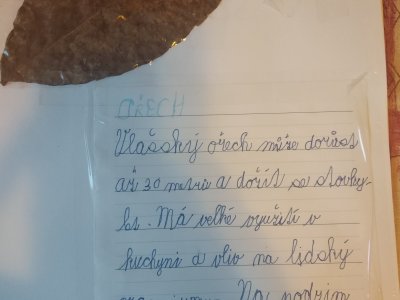 OŘECH
Vlašský ořech může dorůst
až 30 metrů a dožít se stovky
let. Má velké využití v
kuchyni a vliv na lidský
Na podzim